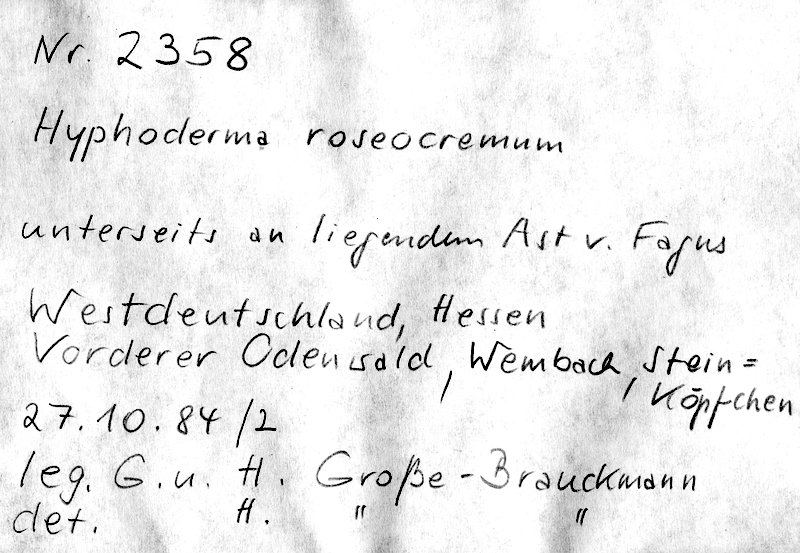 Nr. 2358
Hyphoderma roseocremum
unterseits an liegendem Ast v. Fagus
Westdeutschland, Hessen
Vorderer Odenwald, Wembach, Stein=
Köpfchen
27.10.84/2
leg. G. u. H. Große-Brauckmann
det. H. " "